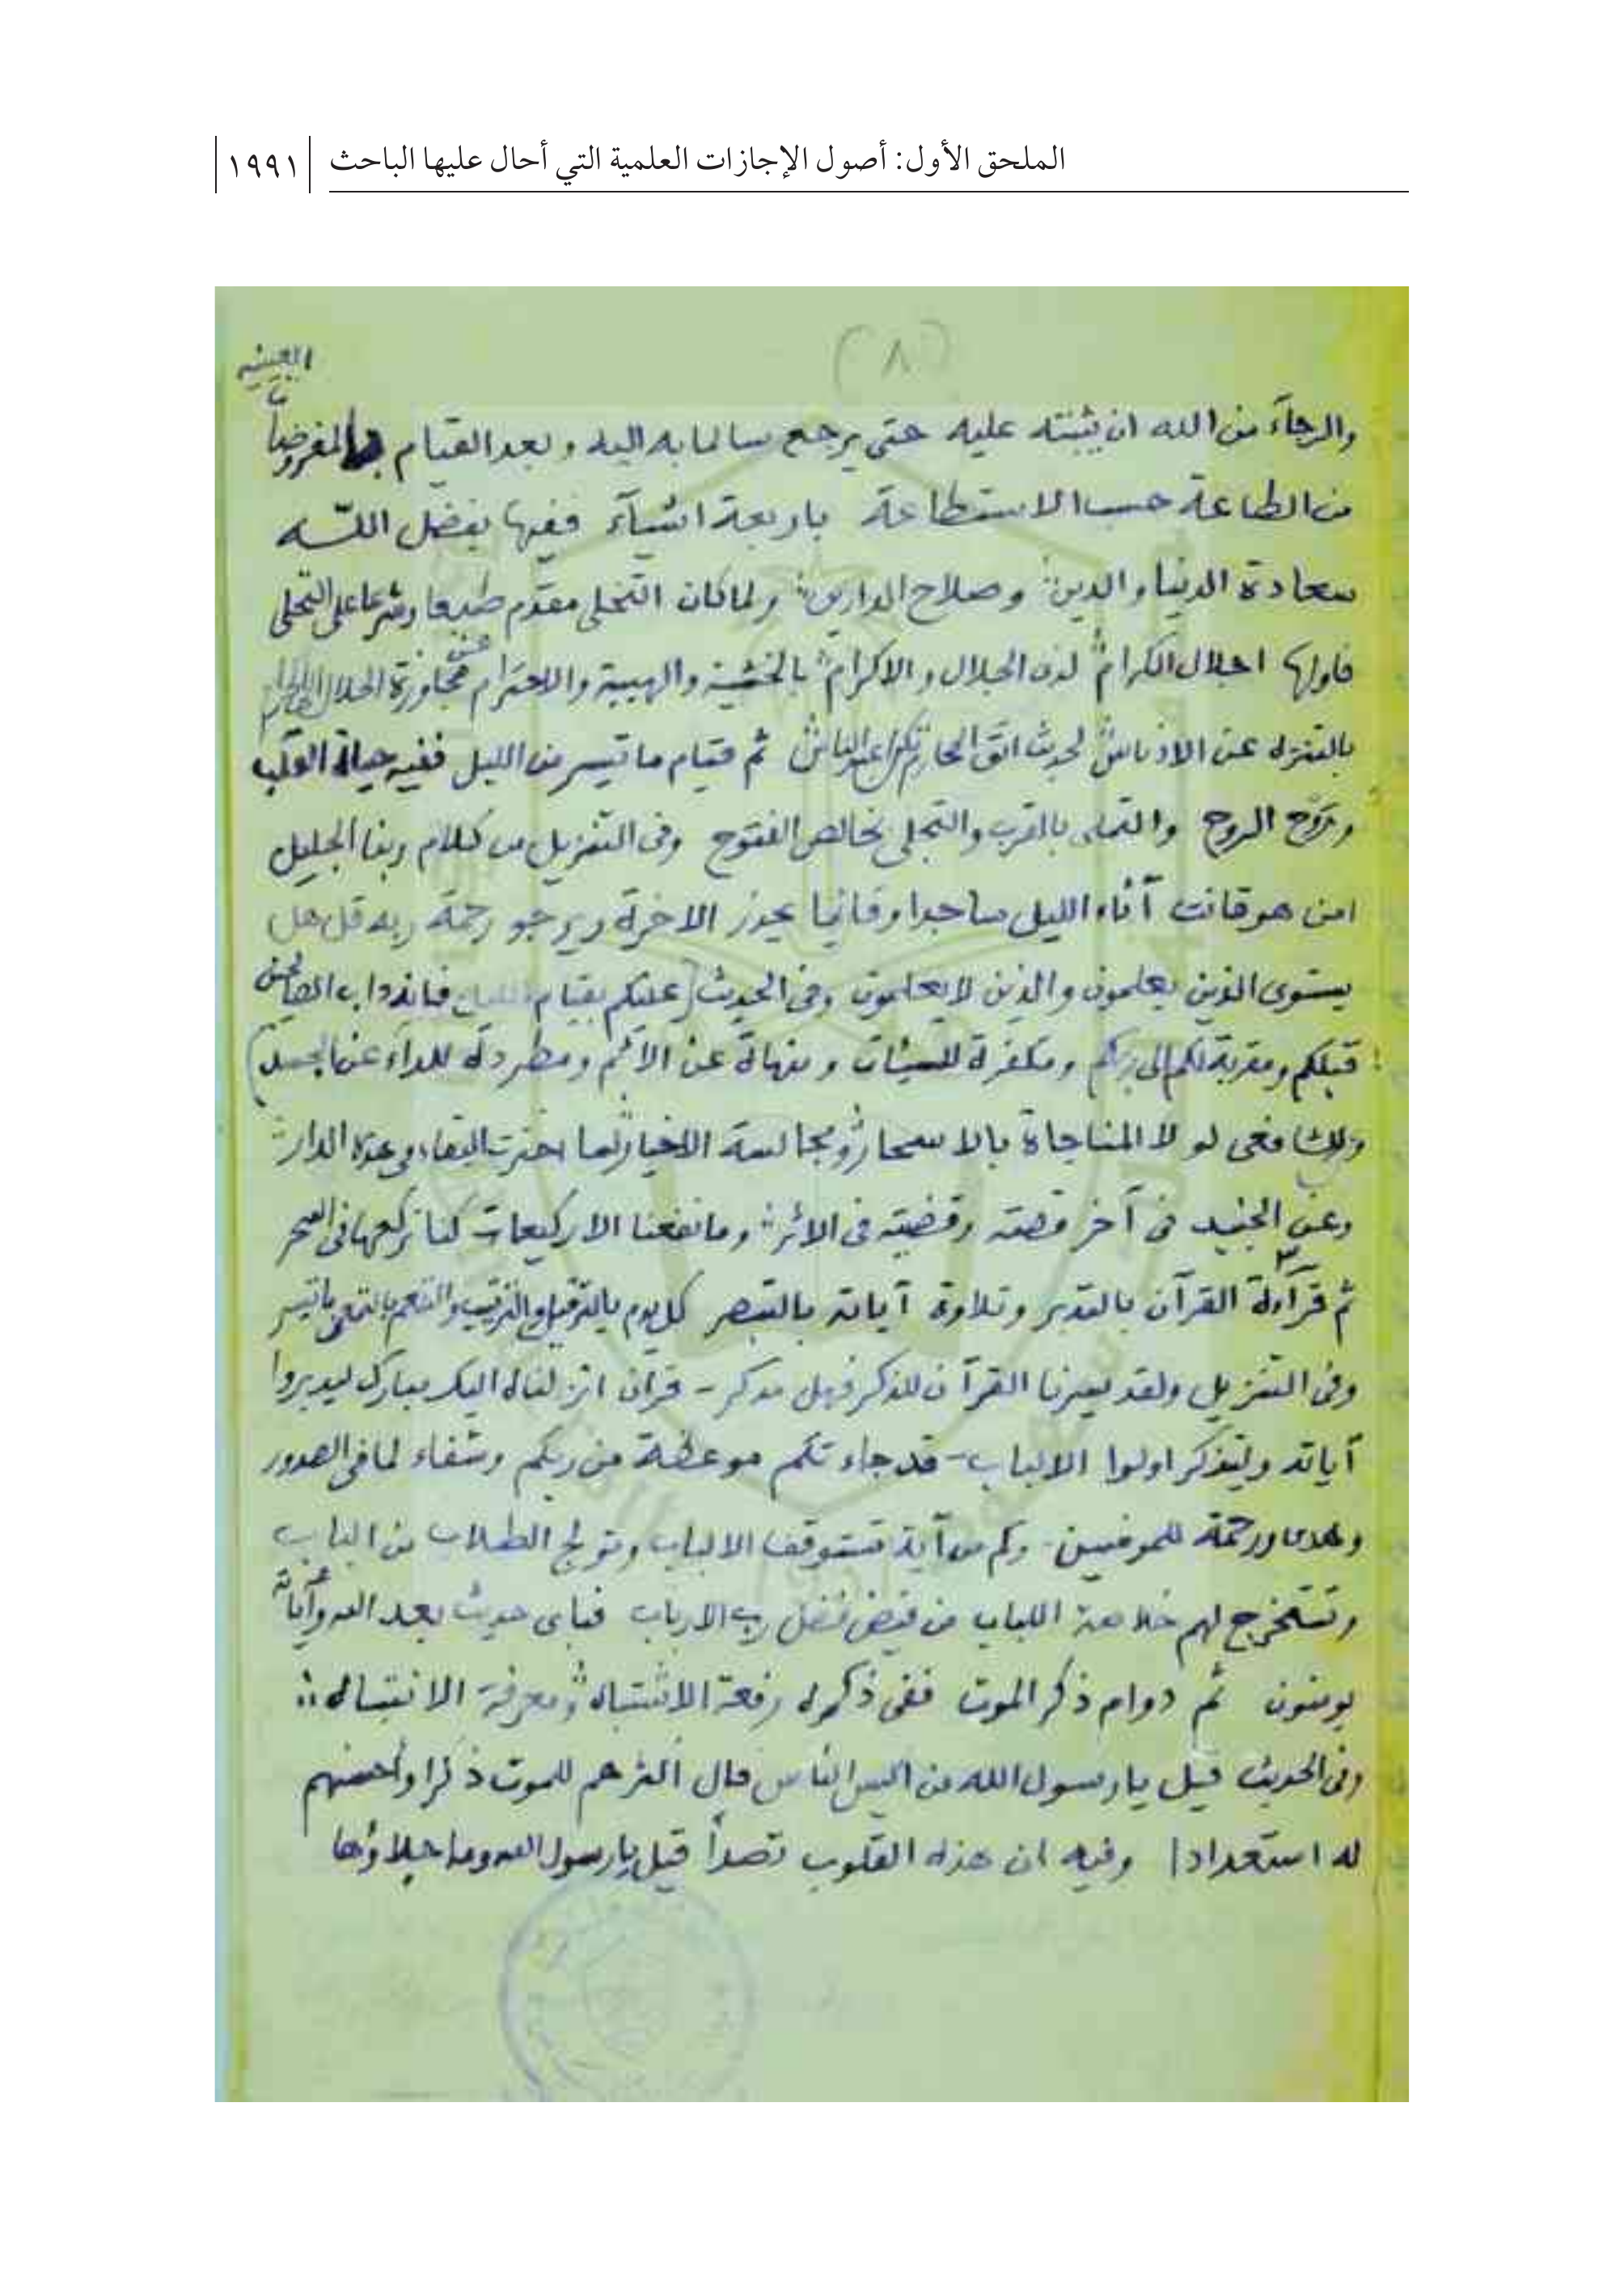 الملحق الأول: أصول الإجازات العلمية التي أحال عليها الباحث
١٩٩١
(٨)
العينيه
والرجآء من الله ان يثبته عليه حتى يرجع سالما به اليه وبعد القيام بالمفروضات
من الطاعة حسب الاستطاعة باربعة اشيآء ففيها بفضل اللّه
سعادة الدنيا والدين وصلاح الدارين ولما كان التخلى مقدم طبعا وشرعا على التحلى
فاولها اجلال الكرام لذى الجلال والاكرام بالخشية والهيبة والاحترام عن مجاوزة الحلال الى الحرام
بالتنزه عن الادناس لحديث اتق المحارم تكن اعبد الناس ثم قيام ما تيسر من الليل ففيه حياة القلب
ورَوْح الروح والتملى بالقرب والتجلى بخالص الفتوح وفى التنزيل من كلام ربنا الجليل
امن هو قانت آناء الليل ساجدا وقائما يحذر الاخرة ويرجو رحمة ربه قل هل
يستوى الذين يعلمون والذين لا يعلمون وفى الحديث (عليكم بقيام الليل فانه داب الصالحين
قبلكم ومقربة لكم الى ربكم ومكفرة للسيئات ومنهاة عن الاثم ومطردة للداء عن الجسد)
وللشافعى لو لا المناجاة بالاسحار ومجالسة الاخيار لما اخترت البقاء فى هذه الدار
وعن الجنيد فى آخر قصته وقضيته فى الاثر وما نفعنا الا ركيعات كنا نركعها فى السحر
٣
ثم قرآءة القرآن بالتدبر وتلاوة آياته بالتبصر كل يوم بالترتيل والترتيب والتنعم بالتمعن ما تيسر
وفى التنزيل ولقد يسرنا القرآن للذكر فهل من مدكر - قرآن انزلناه اليك مبارك ليدبروا
آياته وليتذكر اولوا الالباب - قد جاءتكم موعظة من ربكم وشفاء لما فى الصدور
وهدى ورحمة للمومنين وكم من آية تستوقف الالباب وتولج الطلاب من الباب
وتستخرج لهم خلاصة اللباب من فيض فضل رب الارباب فباى حديث بعد الله وآياته
يومنون ثم دوام ذكر الموت ففى ذكره رفعة الاشتباه ومعرفة الانتباه
وفى الحديث قيل يا رسول الله من اكيس الناس قال اكثرهم للموت ذكرا واحسنهم
له استعدادا وفيه ان هذه القلوب تصدأ قيل يا رسول الله وما جلاؤها